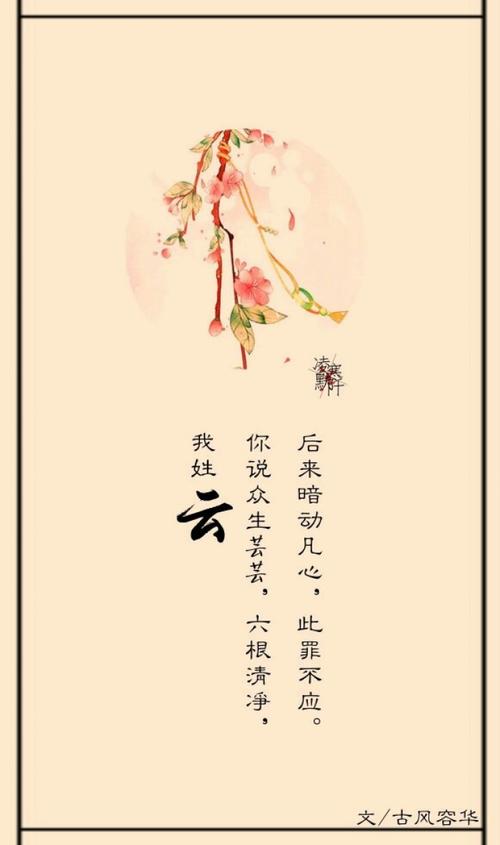 我姓云
你说众生芸芸，六根清净，
后来暗动凡心，此罪不应。
文/古风容华